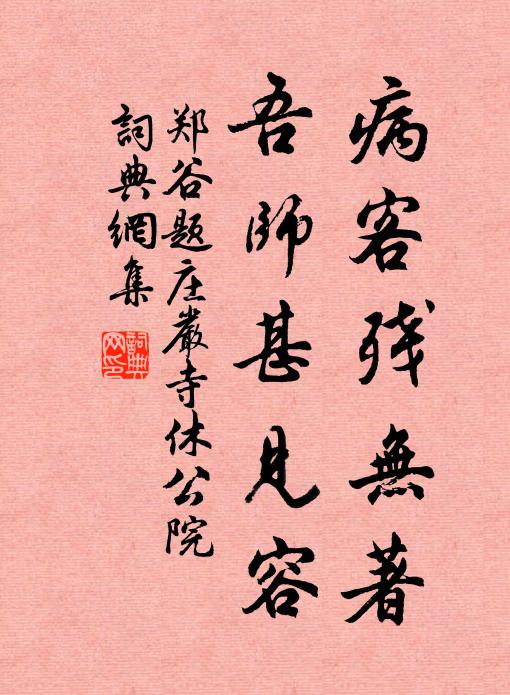 病客残無著
吾師甚見容
郑谷题庄嚴寺休公院
詞典網集
詞典网印